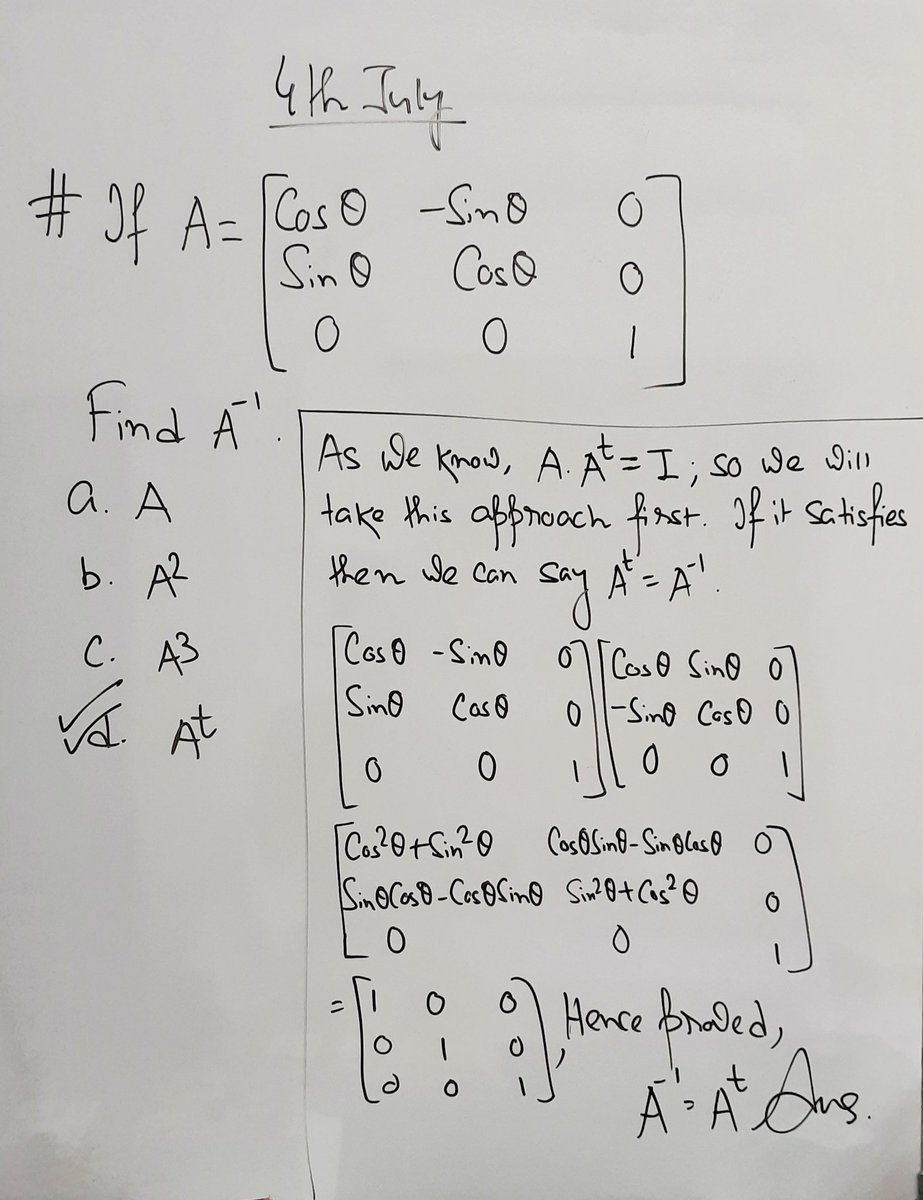 4th July
# If A = [Cosθ -Sinθ 0
Sinθ Cosθ 0
0 0 1]
Find A⁻¹.
a. A
b. A²
c. A³
✓d. Aᵗ
As we know, A. Aᵗ = I ; so we will
take this approach first. If it satisfies
then we can say Aᵗ = A⁻¹.
[Cosθ -Sinθ 0] [Cosθ Sinθ 0]
[Sinθ Cosθ 0] [-Sinθ Cosθ 0]
[0 0 1] [0 0 1]
[Cos²θ+Sin²θ CosθSinθ-SinθCosθ 0
SinθCosθ-CosθSinθ Sin²θ+Cos²θ 0
0 0 1]
= [1 0 0
0 1 0
0 0 1], Hence proved,
A⁻¹ = Aᵗ Ans.